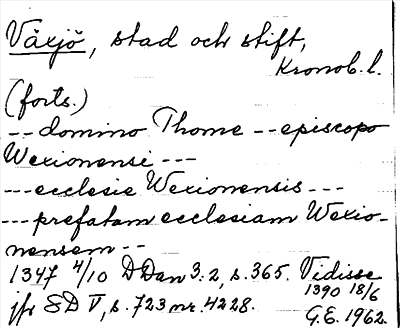 Växjö, stad och stift,
Kronob. l.
(forts.)
-- domino Thome -- episcopo
Wexionensi ---
--- ecclesie Wexionensis ---
--- prefatam ecclesiam Wexio-
nensem --
1347 4/10 DDan 3:2, s. 365. Vidisse
1390 18/6
jfr SD V, s. 723 nr. 4228.
G.E. 1962.